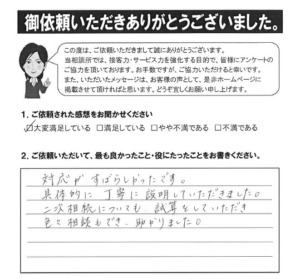 御依頼いただきありがとうございました。
この度は、ご依頼いただきまして誠にありがとうございます。
当相談所では、接客力・サービス力を強化する目的で、皆様にアンケートの
ご協力を頂いております。お手数ですが、ご協力いただけると幸いです。
また、いただいたメッセージは、お客様の声として、是非ホームページに
掲載させて頂ければと思います。どうぞ宜しくお願い申し上げます。
1、ご依頼された感想をお聞かせください
☑大変満足している □満足している □やや不満である □不満である
2、ご依頼いただいて、最も良かったこと・役にたったことをお書きください。
対応がすばらしかったです。
具体的に丁寧に説明していただきました。
二次相続についても試算をしていただき
色々相談もでき、助かりました。